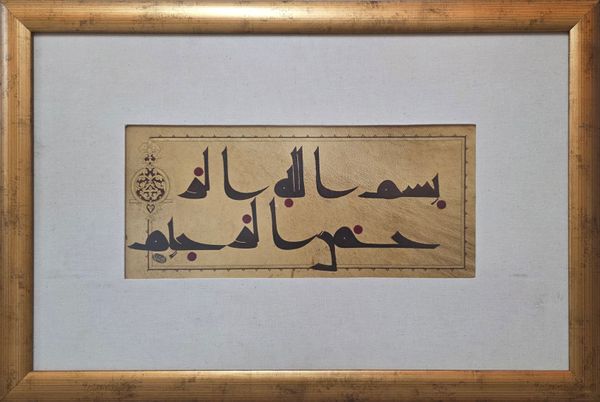 بسم الله الر
حمن الرحيم